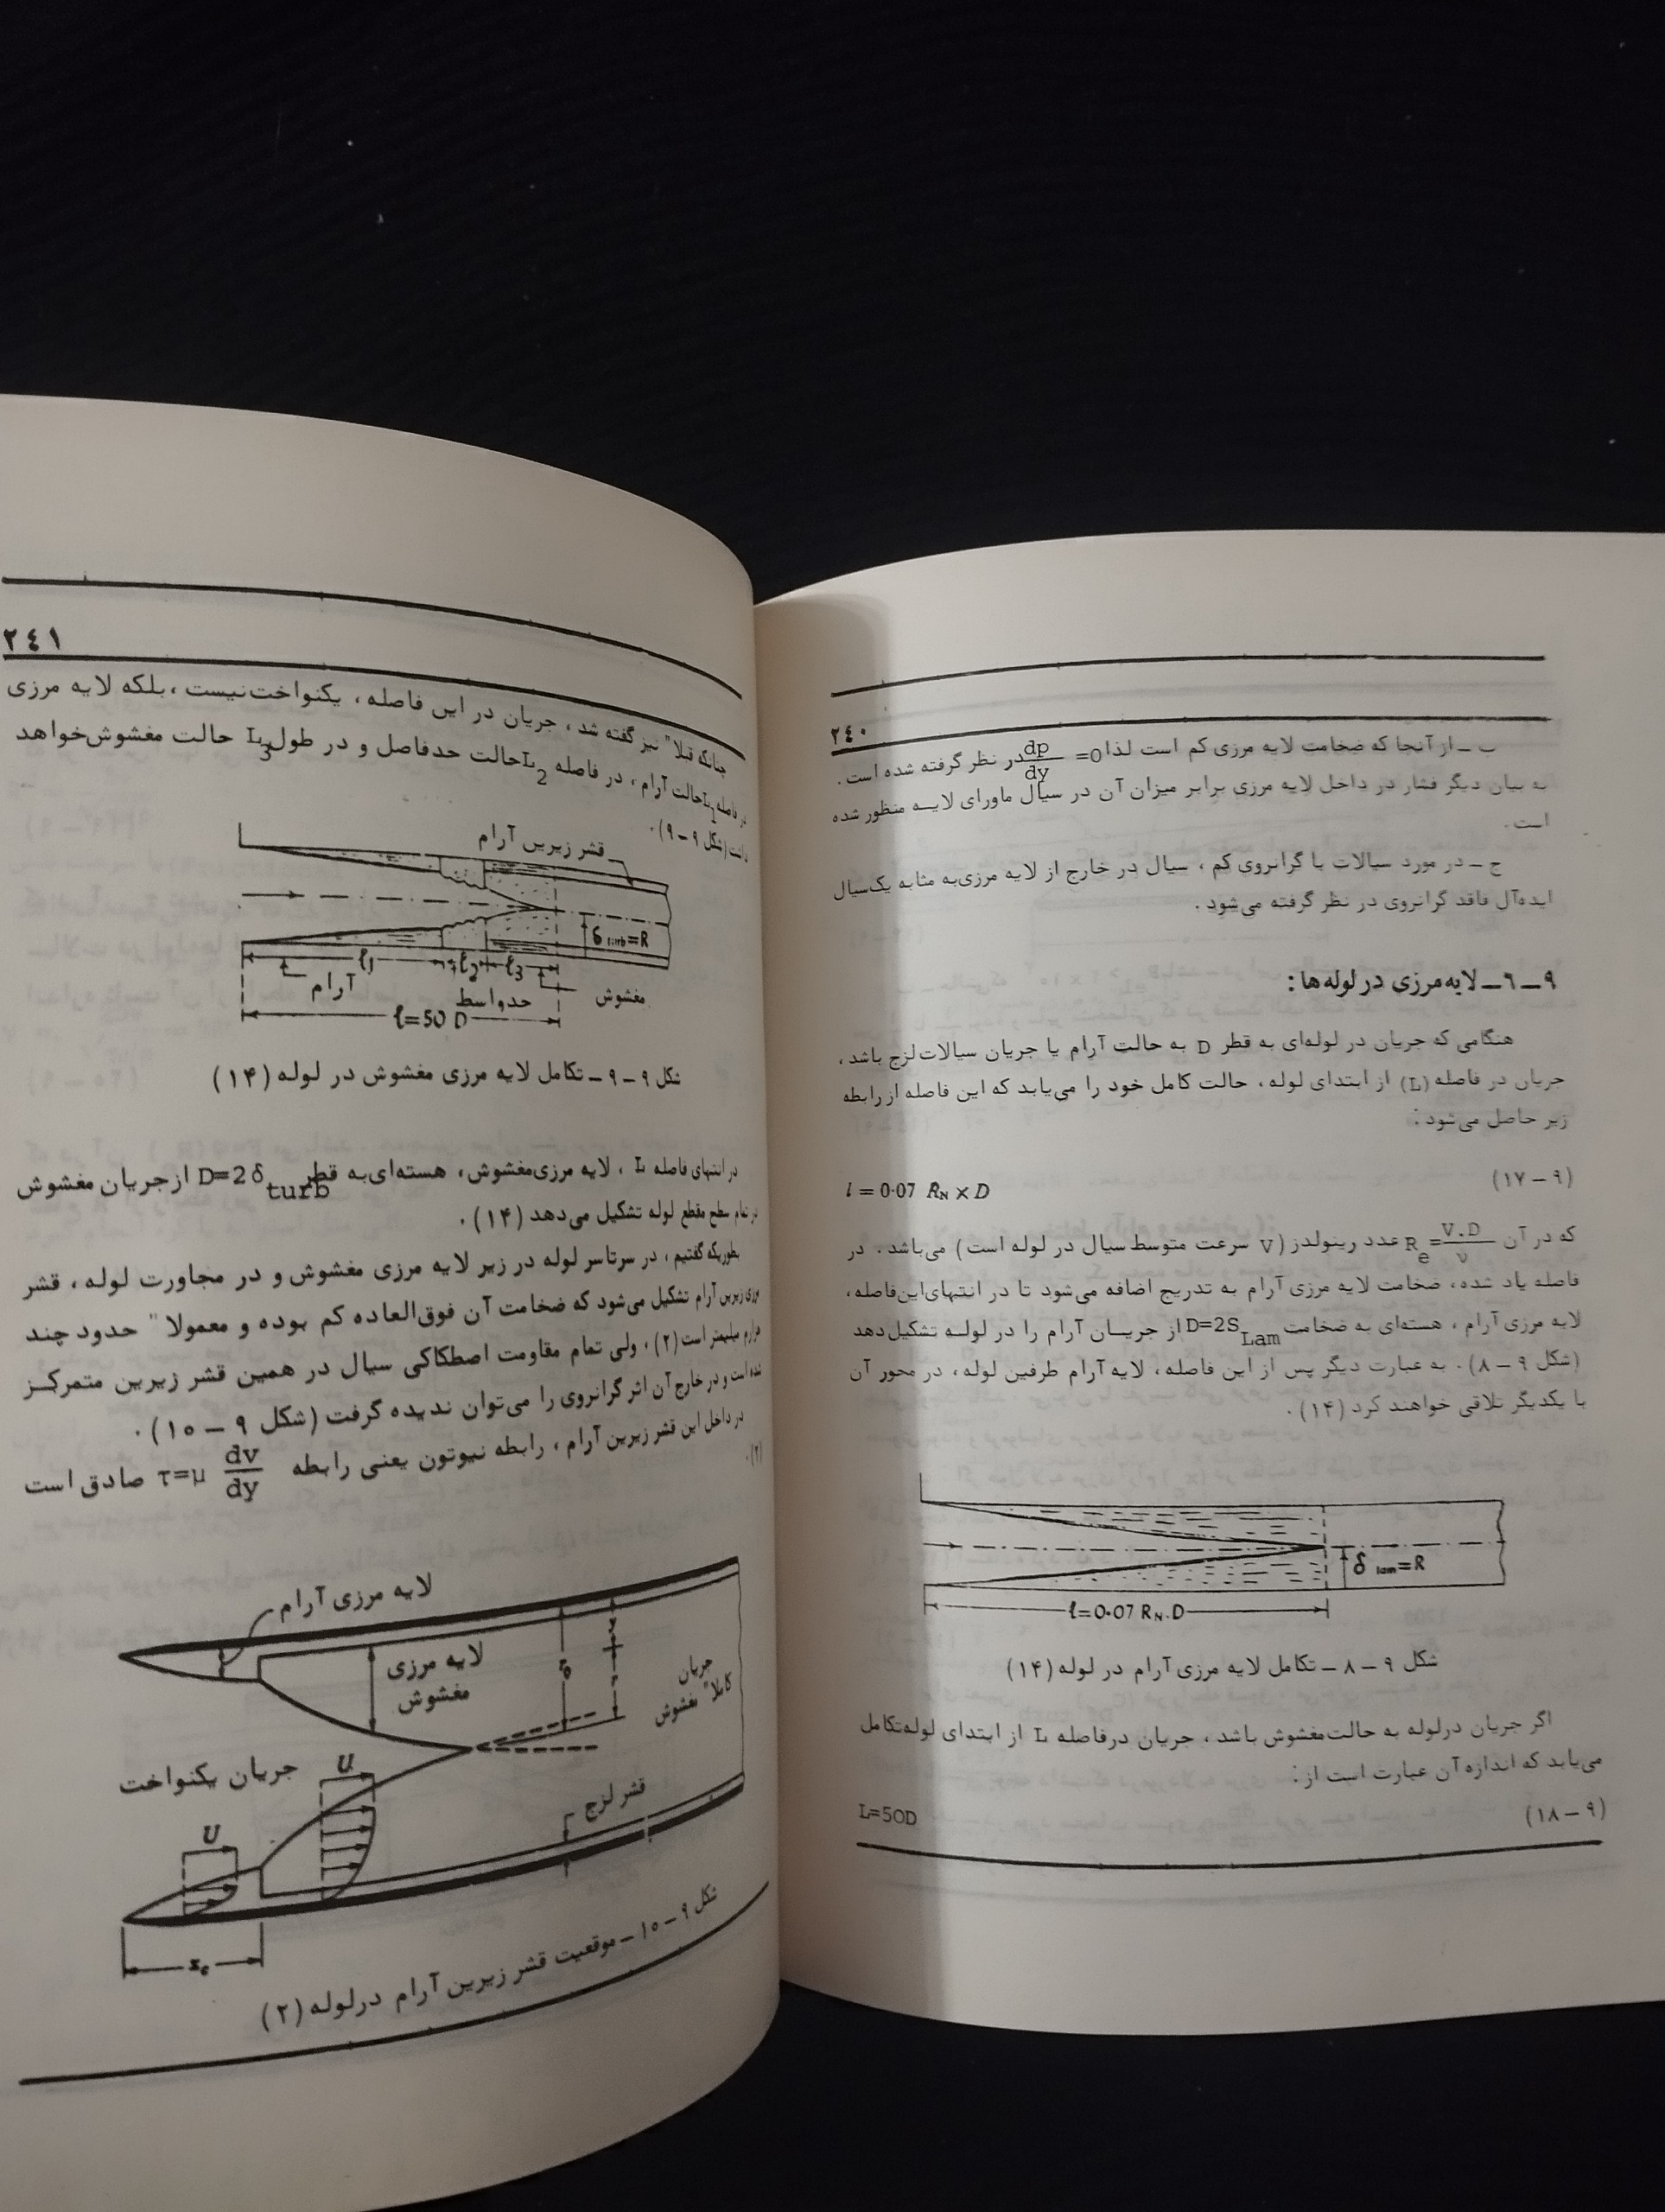 ٢٤٠
ب ــ از آنجا که ضخامت لایه مرزی کم است لذا dp/dy =0 در نظر گرفته شده است .
به بیان دیگر فشار در داخل لایه مرزی برابر میزان آن در سیال ماورای لایه منظور شده
است .
ج ــ در مورد سیالات با گرانروی کم ، سیال در خارج از لایه مرزی به مثابه یک سیال
ایده‌آل فاقد گرانروی در نظر گرفته می‌شود .
٩ ــ ٦ ــ لایه مرزی در لوله ها :
هنگامی که جریان در لوله‌ای به قطر D به حالت آرام یا جریان سیالات لزج باشد ،
جریان در فاصله (L) از ابتدای لوله ، حالت کامل خود را می‌یابد که این فاصله از رابطه
زیر حاصل می‌شود :
l = 0·07 RN × D (٩ – ١٧)
که در آن Re = V.D/ν عدد رینولدز (V سرعت متوسط سیال در لوله است) می‌باشد . در
فاصله یاد شده ، ضخامت لایه مرزی آرام به تدریج اضافه می‌شود تا در انتهای این فاصله ،
لایه مرزی آرام ، هسته‌ای به ضخامت D=2SLam از جریان آرام را در لوله تشکیل دهد
(شکل ٩ – ٨) . به عبارت دیگر پس از این فاصله ، لایه آرام طرفین لوله ، در محور آن
با یکدیگر تلاقی خواهند کرد (١۴) .
δ lam=R
l=0·07 RN.D
شکل ٩ – ٨ – تکامل لایه مرزی آرام در لوله (١۴)
اگر جریان در لوله به حالت مغشوش باشد ، جریان در فاصله L از ابتدای لوله تکامل
می‌یابد که اندازه آن عبارت است از :
L=50D (٩ – ١٨)
٢٤١
چنانکه قبلا" نیز گفته شد ، جریان در این فاصله ، یکنواخت نیست ، بلکه لایه مرزی
در فاصله L1 حالت آرام ، در فاصله L2 حالت حدفاصل و در طول L3 حالت مغشوش خواهد
داشت (شکل ٩ – ٩) .
قشر زیرین آرام
δ turb=R
l1 l2 l3
آرام
حدواسط
مغشوش
l=50 D
شکل ٩ – ٩ – تکامل لایه مرزی مغشوش در لوله (١۴)
در انتهای فاصله L ، لایه مرزی مغشوش ، هسته‌ای به قطر D=2δturb از جریان مغشوش
در تمام سطح مقطع لوله تشکیل می‌دهد (١۴) .
بطوریکه گفتیم ، در سرتاسر لوله در زیر لایه مرزی مغشوش و در مجاورت لوله ، قشر
مرزی زیرین آرام تشکیل می‌شود که ضخامت آن فوق‌العاده کم بوده و معمولا" حدود چند
هزارم میلیمتر است (٢) ، ولی تمام مقاومت اصطکاکی سیال در همین قشر زیرین متمرکز
شده است و در خارج آن اثر گرانروی را می‌توان ندیده گرفت (شکل ٩ – ١٥) .
در داخل این قشر زیرین آرام ، رابطه نیوتون یعنی رابطه τ=μ dv/dy صادق است
(٢) .
لایه مرزی آرام
لایه مرزی
مغشوش
جریان
کاملا" مغشوش
r0
y
r
جریان یکنواخت
U
U
قشر لزج
xc
شکل ٩ – ١٥ – موقعیت قشر زیرین آرام در لوله (٢)